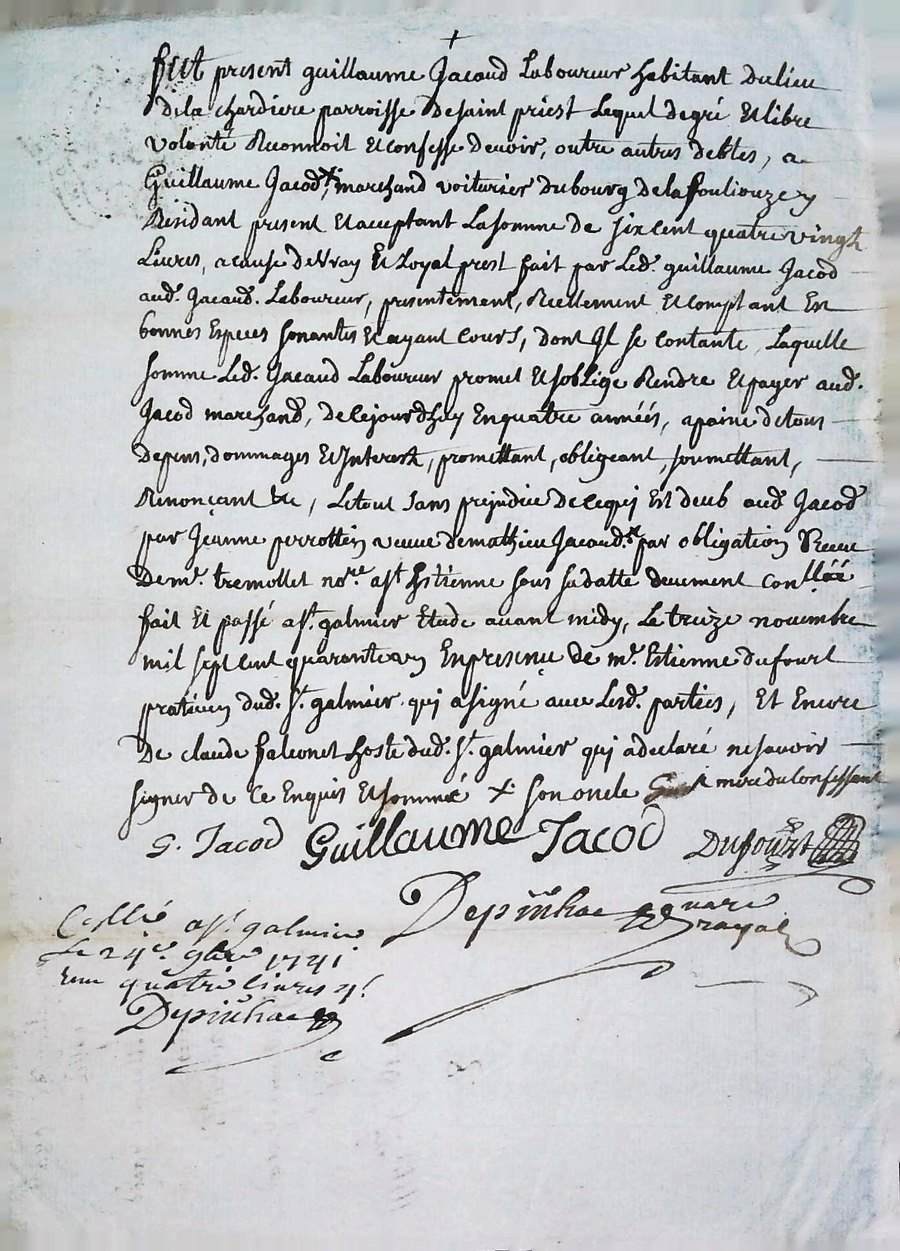 +
fut present guillaume Jacaud Laboureur habitant du lieu
de la chardiere parroisse de saint priest Lequel de gré Et libre
volonté Reconnoit Et confesse devoir, outre autres debtes, a
Guillaume Jacod x marchand voiturier du bourg de la fouliouze y
Résidant present Et acceptant La somme de six cent quatre vingt
Livres, a cause de vray Et Loyal prest fait par Led. guillaume Jacod
aud. Jacaud. Laboureur, presentement, Reellement Et comptant En
bonnes Especes sonantes Et ayant cours, dont Il se contante, Laquelle
somme Led. Jacaud Laboureur promet Et soblige Rendre Et payer aud.
Jacod marchand, de ce jourdhuy En quatre années, a paine de tous
depens, dommages Et Interest, promettant, obligeant, soumettant,
Renonçant &c, Le tout sans prejudice de ce qui Est deub aud Jacod
par Jeanne perrottin veuve de mathieu Jacaud. par obligation Receue
De me. tremollet nore. a st. Estienne sous sa datte duement conllée
fait Et passé a st. galmier Etude avant midy, Le treize novembre
mil sept cent quarante un En presence de me. Estienne dufourt
praticien dud. st. galmier qui a signé avec Lesd. parties, Et Encore
De claude falconet hoste dud. st. galmier qui a declaré ne savoir
signer de ce Enquis Et sommé x son oncle du confessant
G. Jacod Guillaume Jacod Dufourt
Depinhac nore royal
Collé a st. galmier
Le 24e. 9bre 1741
quatre livres 4s
Depinhac